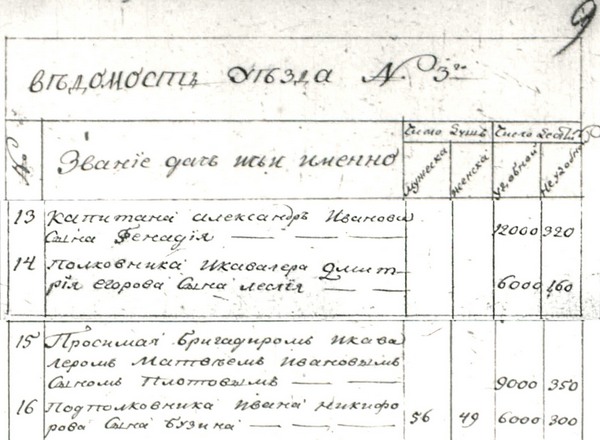 9
ВѢДОМОСТЬ УѢЗДА N. 3го
No
Званiе дачь чьи именно
Число Душъ
Число Десят.
мужеска
женска
удобной
неудобной
13 Капитана Александръ Иванова
Сына Генадiя — — — 12000 320
14 Полковника икавалера Дмит-
рiя Егорова Сына Лесли — — 6000 160
15 Просимая Бригадиромъ икава
леромъ Матвѣемъ Ивановымъ
Сыномъ Платовымъ — — 9000 350
16 Подполковника Ивана Никифо
рова Сына Бузина — — 56 49 6000 300